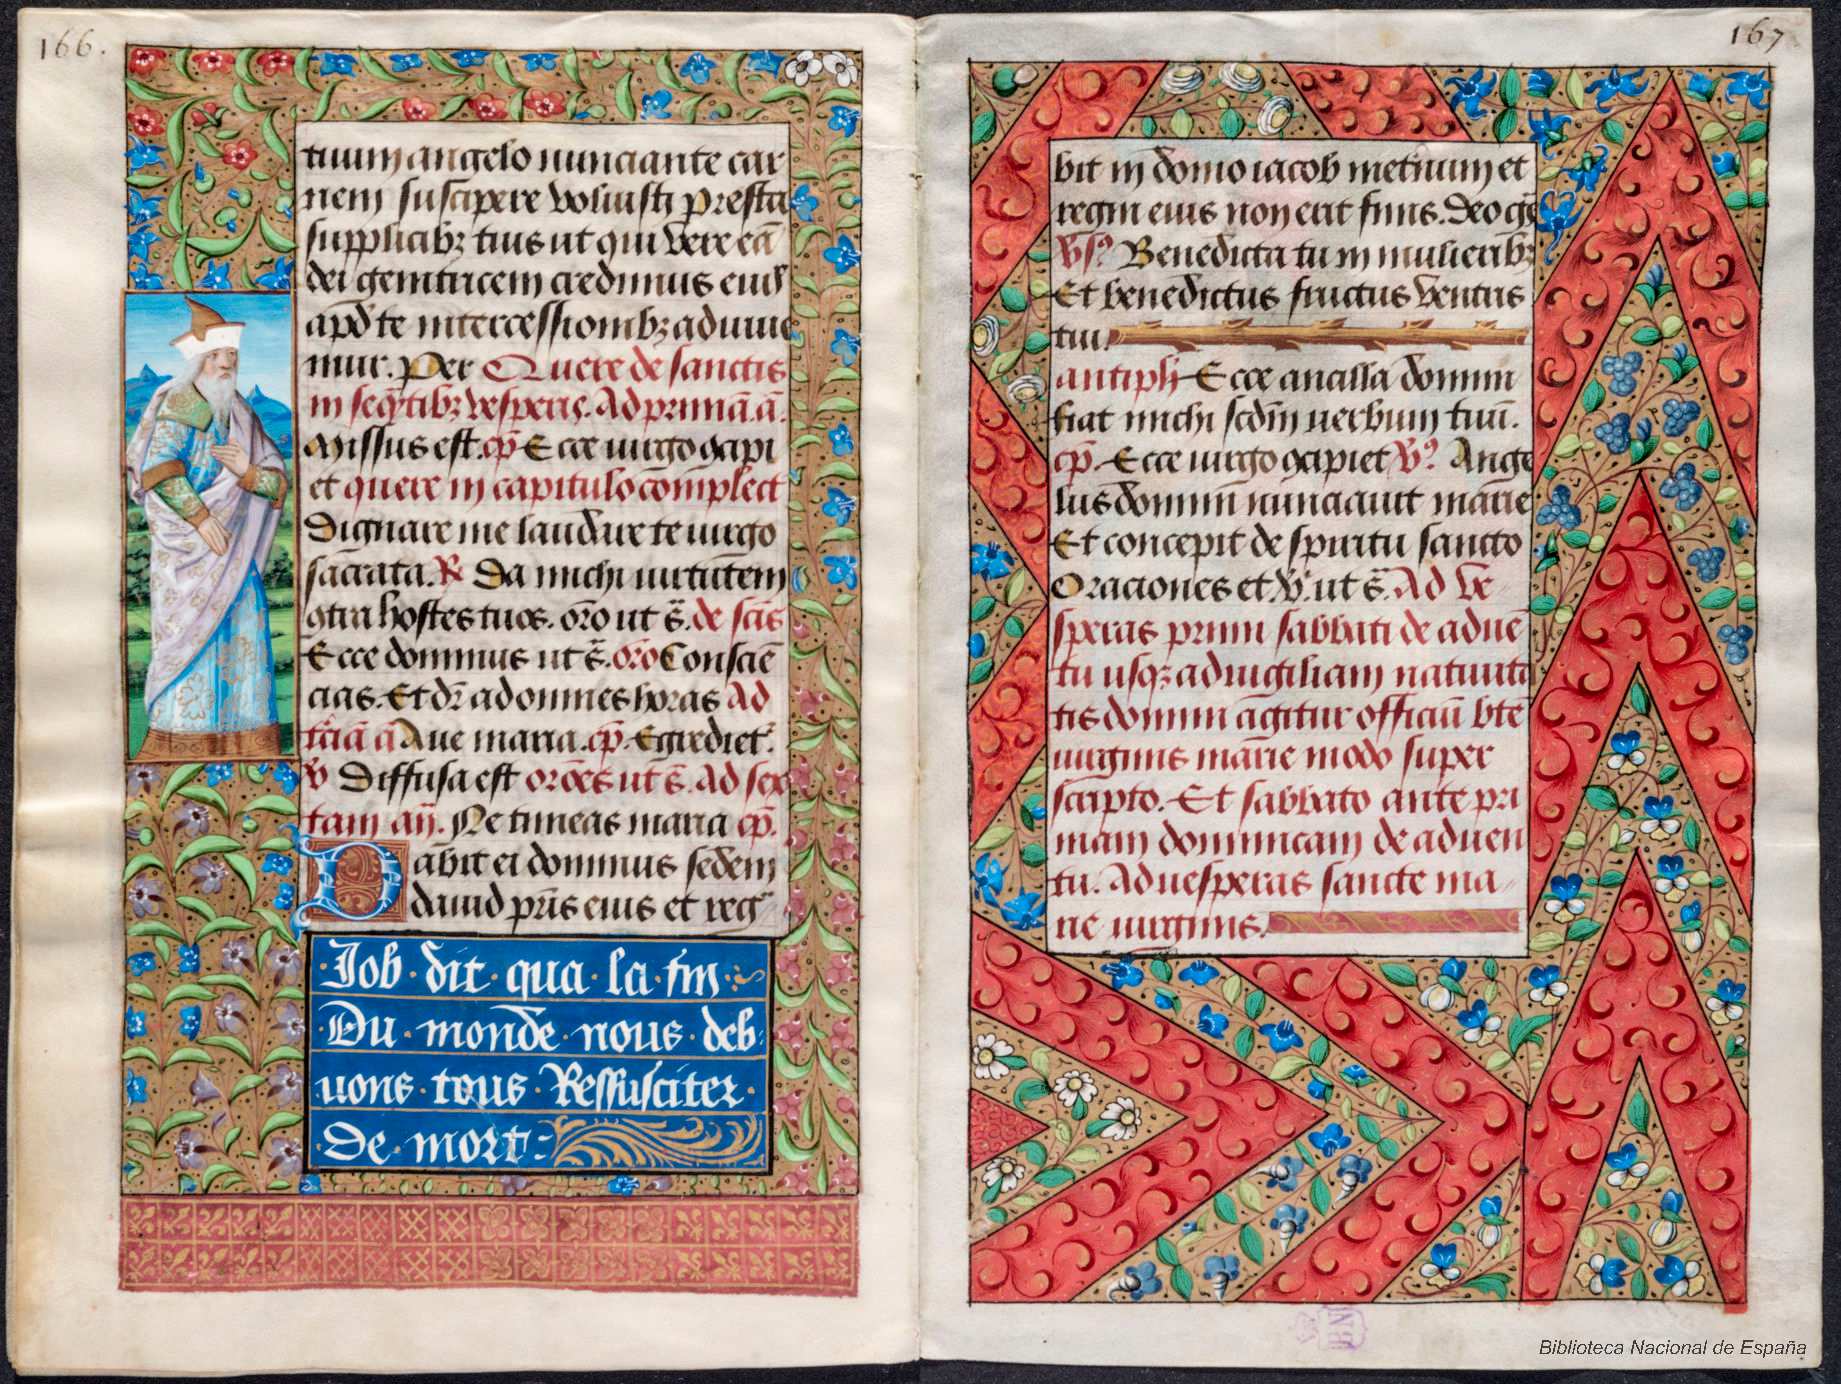 166.
tuum angelo nunciante car
nem suscipere voluisti presta
supplicibȝ tuis ut qui vere eā
dei genitricem credimus eius
apd̄ te intercessionibȝ adiuue
mur. per Quere de sanctis
in seqn̄tibȝ vesperis. Ad primā. ā.
Missus est. cp̄ Ecce uirgo ꝯcipi
et quere in capitulo complect
Dignare me laudare te uirgo
sacrata. ℟ Da michi uirtutem
ꝯtra hostes tuos. oro ut s̄. de scīs
Ecce dominus ut s̄. oro Consciē
cias. Et dr̄ ad omnes horas Ad
tʼciā ā Aue maria. cp̄. Egredietʼ.
v Diffusa est orōes ut s̄. Ad sex
tam añ. Ne timeas maria cp̄.
Dabit ei dominus sedem
dauid prīs eius et reg
Iob · dit · qua · la · fin ·
· Du · monde · nous · deb ·
uons · tous · Ressusciter ·
· De · mort :
167
bit in domo iacob ineternum et
regni eius non erit finis. deo gr̄
v̄sꝰ Benedicta tu in mulieribȝ
Et benedictus fructus ventris
tui.
antiph Ecce ancilla domini
fiat michi scdm̄ uerbum tuū.
cp̄. Ecce uirgo ꝯcipiet v̄ꝰ Ange
lus domini nunciauit marie
Et concepit de spiritu sancto
Oraciones et v̄. ut s̄. Ad ve-
speras primi sabbati de aduē
tu usqȝ ad uigiliam natiuita
tis domini āgitur officiū bte
uirginis marie modo super
scripto. Et sabbato ante pri
mam dominicam de aduen
tu. Ad uesperas sancte ma-
rie uirginis.
Biblioteca Nacional de España